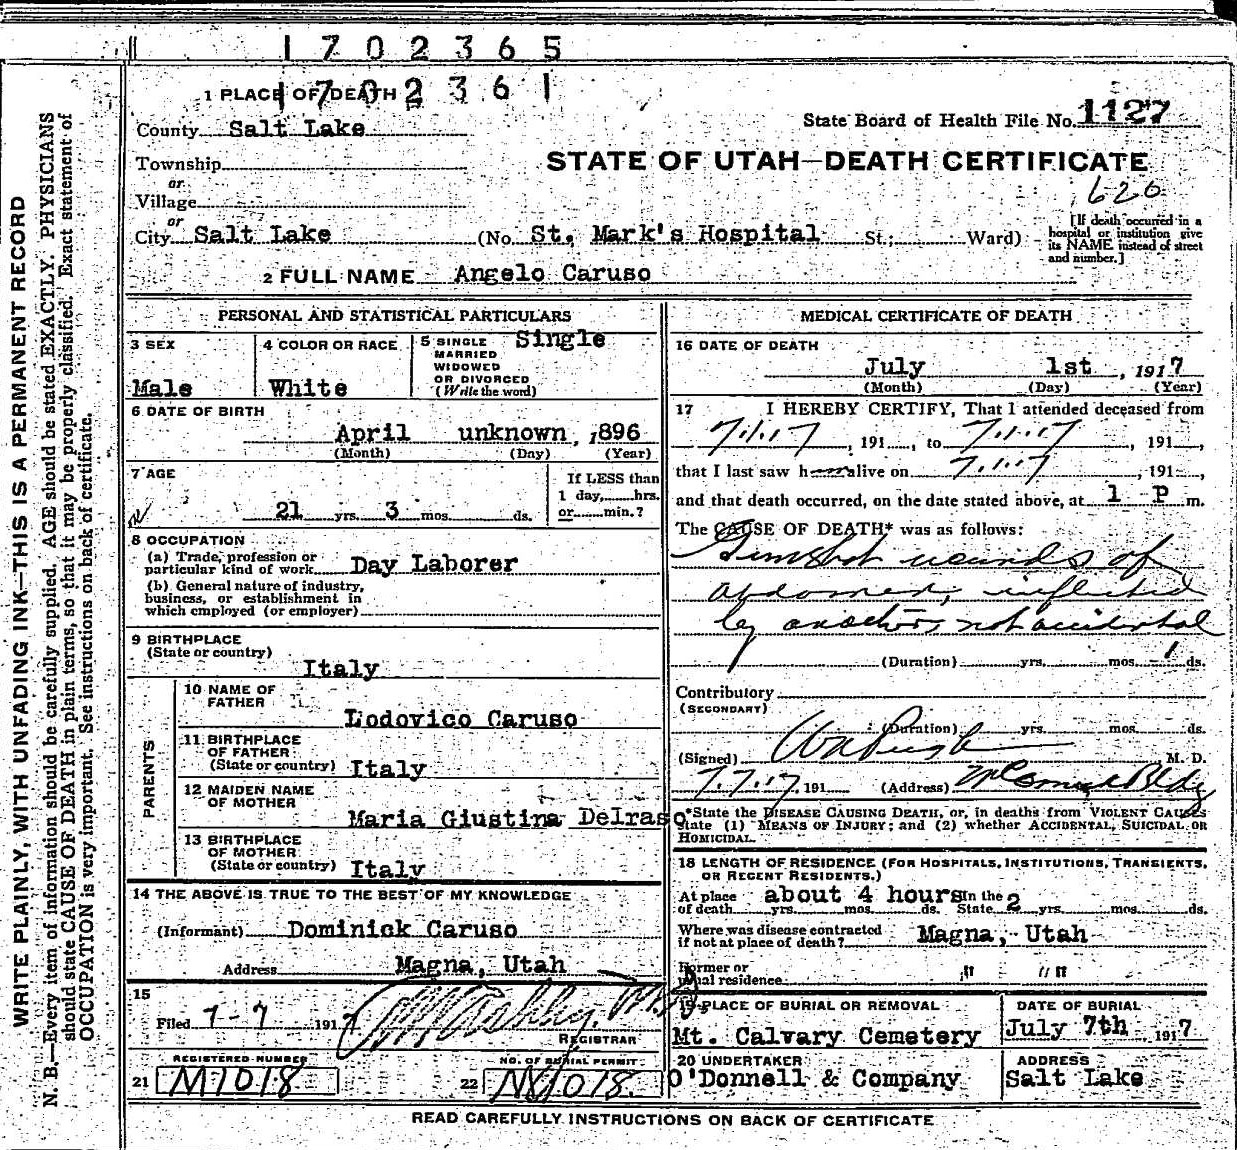 1702365
1702361
1 PLACE OF DEATH
County Salt Lake
State Board of Health File No. 1127
Township
STATE OF UTAH—DEATH CERTIFICATE
or
Village
620
or
City Salt Lake (No. St. Mark's Hospital St.; Ward)
[If death occurred in a
hospital or institution give
its NAME instead of street
and number.]
2 FULL NAME Angelo Caruso
PERSONAL AND STATISTICAL PARTICULARS
3 SEX
Male
4 COLOR OR RACE
White
5 SINGLE Single
MARRIED
WIDOWED
OR DIVORCED
(Write the word)
6 DATE OF BIRTH
April unknown, 1896
(Month) (Day) (Year)
7 AGE
21 yrs. 3 mos. ds.
If LESS than
1 day, hrs.
or min.?
8 OCCUPATION
(a) Trade, profession or
particular kind of work Day Laborer
(b) General nature of industry,
business, or establishment in
which employed (or employer)
9 BIRTHPLACE
(State or country)
Italy
PARENTS
10 NAME OF
FATHER
Lodovico Caruso
11 BIRTHPLACE
OF FATHER
(State or country) Italy
12 MAIDEN NAME
OF MOTHER
Maria Giustina Delraso
13 BIRTHPLACE
OF MOTHER
(State or country) Italy
14 THE ABOVE IS TRUE TO THE BEST OF MY KNOWLEDGE
(Informant) Dominick Caruso
Address Magna, Utah
15
Filed 7-7 1917
REGISTRAR
REGISTERED NUMBER
21 M1018
NO. OF BURIAL PERMIT
22 M1018
MEDICAL CERTIFICATE OF DEATH
16 DATE OF DEATH
July 1st, 1917
(Month) (Day) (Year)
17 I HEREBY CERTIFY, That I attended deceased from
7.1.17, 191, to 7.1.17, 191,
that I last saw h alive on 7.1.17, 191,
and that death occurred, on the date stated above, at 1 P m.
The CAUSE OF DEATH* was as follows:
Gunshot wounds of
abdomen, inflicted
by another, not accidental
(Duration) yrs. mos. 1 ds.
Contributory
(SECONDARY)
(Duration) yrs. mos. ds.
(Signed) M. D.
7.7.17 191 (Address) Bldg
*State the DISEASE CAUSING DEATH, or, in deaths from VIOLENT CAUSES
state (1) MEANS OF INJURY; and (2) whether ACCIDENTAL, SUICIDAL OR
HOMICIDAL.
18 LENGTH OF RESIDENCE (FOR HOSPITALS, INSTITUTIONS, TRANSIENTS,
OR RECENT RESIDENTS.)
At place about 4 hours In the 2
of death yrs. mos. ds. State yrs. mos. ds.
Where was disease contracted
if not at place of death? Magna, Utah
Former or
usual residence " " "
19 PLACE OF BURIAL OR REMOVAL
Mt. Calvary Cemetery
DATE OF BURIAL
July 7th 1917
20 UNDERTAKER
O'Donnell & Company
ADDRESS
Salt Lake
READ CAREFULLY INSTRUCTIONS ON BACK OF CERTIFICATE
WRITE PLAINLY, WITH UNFADING INK—THIS IS A PERMANENT RECORD
N. B.—Every item of information should be carefully supplied. AGE should be stated EXACTLY. PHYSICIANS
should state CAUSE OF DEATH in plain terms, so that it may be properly classified. Exact statement of
OCCUPATION is very important. See instructions on back of certificate.